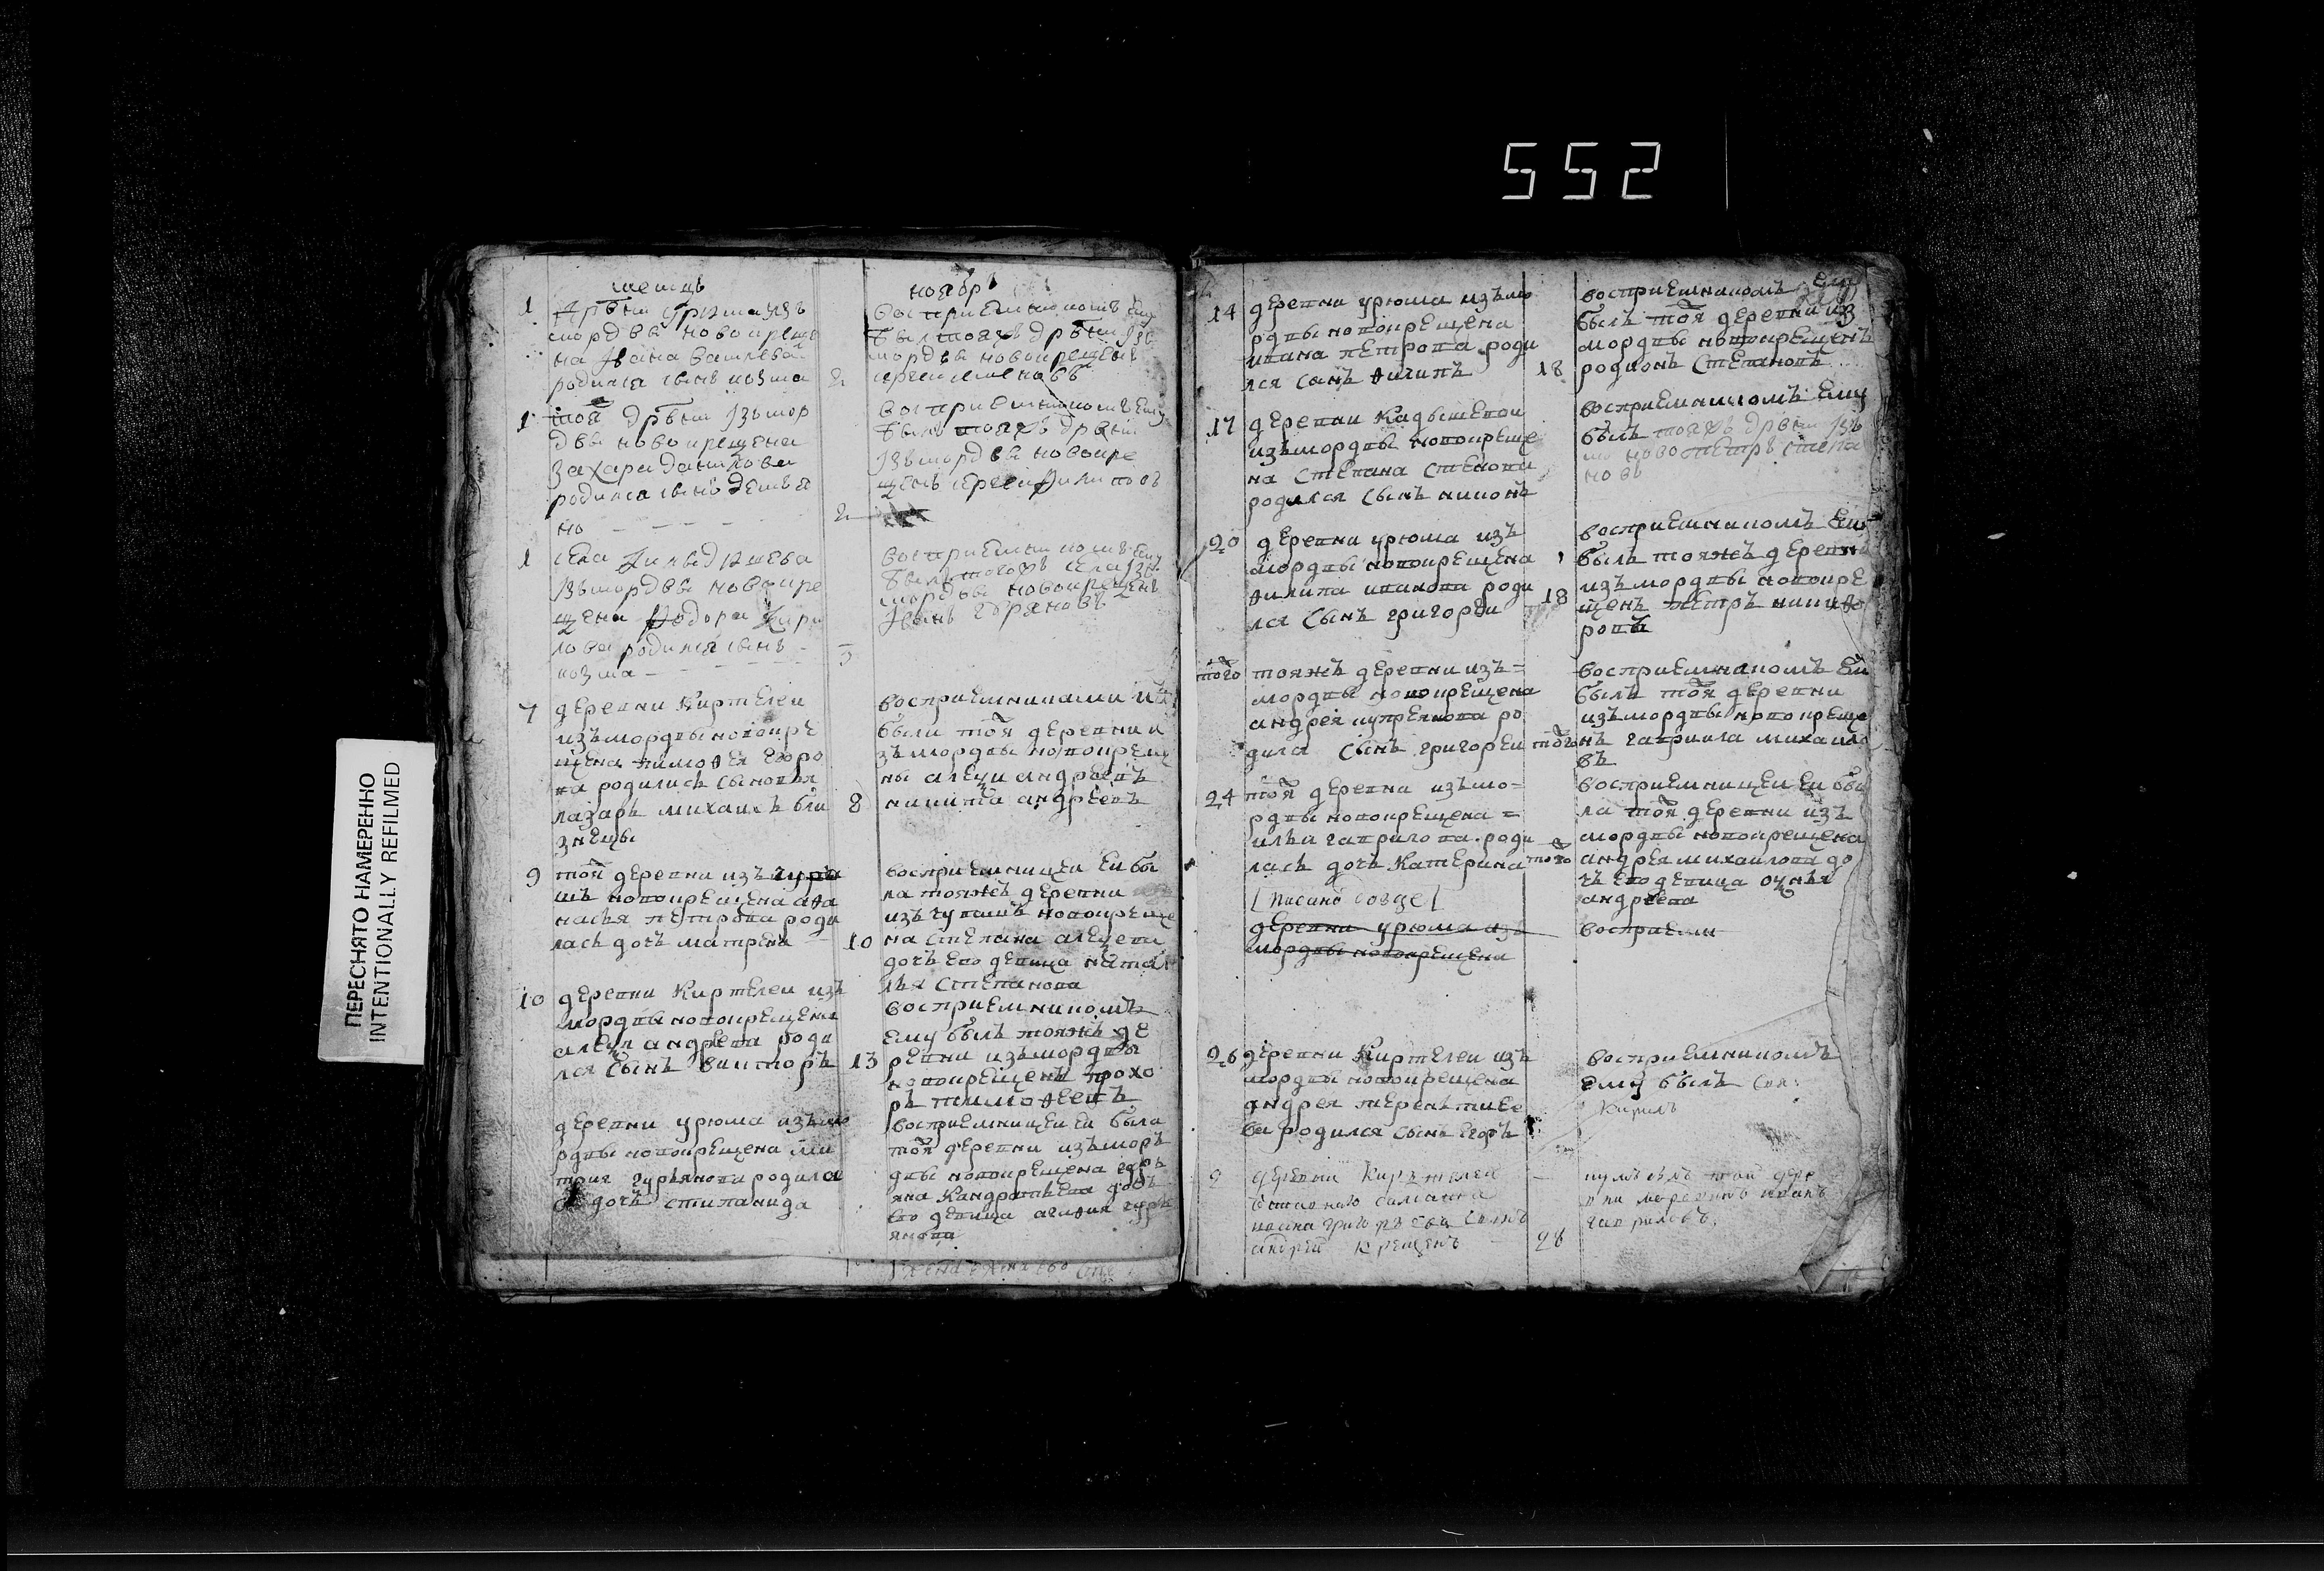 552
ПЕРЕСНЯТО НАМЕРЕННО
INTENTIONALLY REFILMED
месяцъ
ноябрь
1
мордвы новокреще
на Ивана
родился сынъ козма
2
воспріемникомъ ему
былъ тояжъ дрвни изъ
мордвы новокрещенъ
1
тоя дрвни изъ мор
двы новокрещена
захара данилова
родился сынъ демья
но
2
воспріемникомъ ему
былъ тояжъ дрвни
изъ мордвы новокре
щенъ сергеи филиповъ
1
села
изъ мордвы новокре
щена федора кири
лова родился сынъ
козма
3
воспріемникомъ ему
былъ тогожъ села изъ
мордвы новокрещенъ
7
деревни Киртелеи
изъ мордвы новокре
щена тимофея егоро
ва родились сыновья
лазарь михаилъ бли
знецы
8
воспріемниками
были тоя деревни и
зъ мордвы новокреще
ны алеѯи андреевъ
никита андреевъ
9
тоя деревни изъ чува
шъ новокрещена афа
насья петрова роди
лась дочь матрена
10
воспріемницеи еи бы
ла тояжъ деревни
изъ чувашъ новокреще
на степана алеѯеева
дочь его девица ната
лья степанова
10
деревни Киртелеи изъ
мордвы новокрещена
алеѯея андреева роди
лся сынъ викторъ
13
воспріемникомъ
ему былъ тояжъ де
ревни изъ мордвы
новокрещенъ прохо
ръ тимофеевъ
деревни урюма изъ мо
рдвы новокрещена ми
трия гурьянова родила
сь дочь стипанида
воспріемницеи еи была
тоя деревни изъ мор
двы новокрещена гурь
яна кандратьева дочь
его девица агафия гурь
янова
14
деревни урюма изъ мо
рдвы новокрещена
ивана петрова роди
лся сынъ филипъ
18
воспріемникомъ ему
былъ тоя деревни из
мордвы новокрещенъ
родионъ степановъ
17
деревни Кадышевои
изъ мордвы новокреще
на степана
родился сынъ никонъ
воспріемникомъ ему
былъ тояжъ дрвни изъ
мо ново петръ степа
новъ
20
деревни урюма изъ
мордвы новокрещена
филипа иванова роди
лся сынъ григореи
18
воспріемникомъ ему
былъ тояжъ деревни
изъ мордвы новокре
щенъ петръ никифо
ровъ
того
тояжъ деревни изъ=
мордвы новокрещена
андрея купреянова ро
дился сынъ григореи
того
воспріемникомъ ему
былъ тоя деревни
изъ мордвы новокреще
нъ гавриила михаило
въ
24
тоя деревни изъ мо=
рдвы новокрещена=
ильи гаврилова роди
лась дочь Катерина
того
воспріемницеи еи бы
ла тоя деревни изъ
мордвы новокрещена
андрея михаилова до
чь его девица
андреева
деревни урюма изъ
мордвы новокрещена
воспріемни
26
деревни Киртелеи изъ
мордвы новокрещена
андрея терентиев
ва родился сынъ егоръ
воспріемникомъ
ему былъ
деревни Киртелеи
андреи крещенъ
28